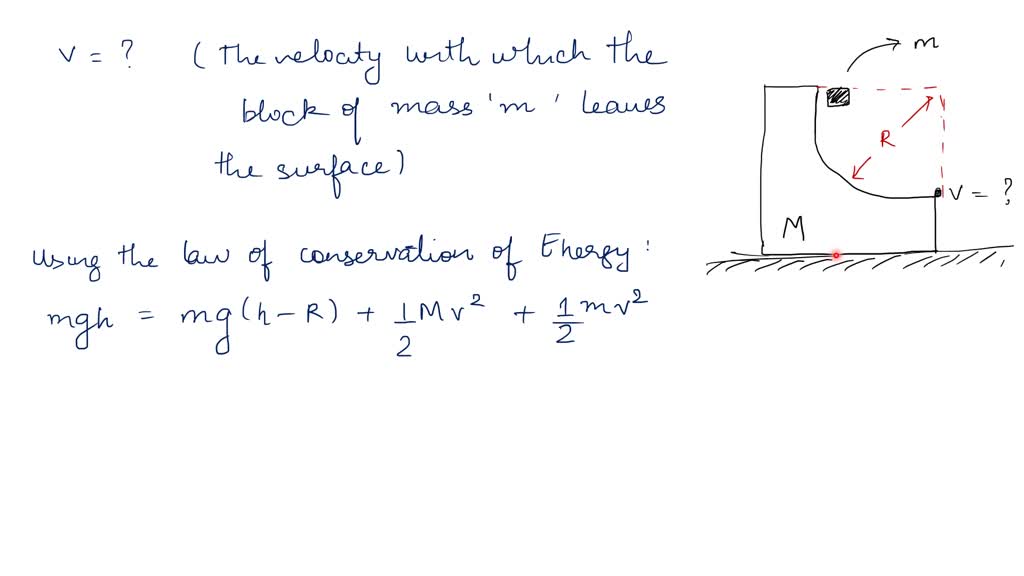 v = ? (The velocity with which the
block of mass 'm' leaves
the surface)
using the law of conservation of Energy:
mgh = mg(h-R) + 1/2 Mv² + 1/2 mv²
m
R
v = ?
M